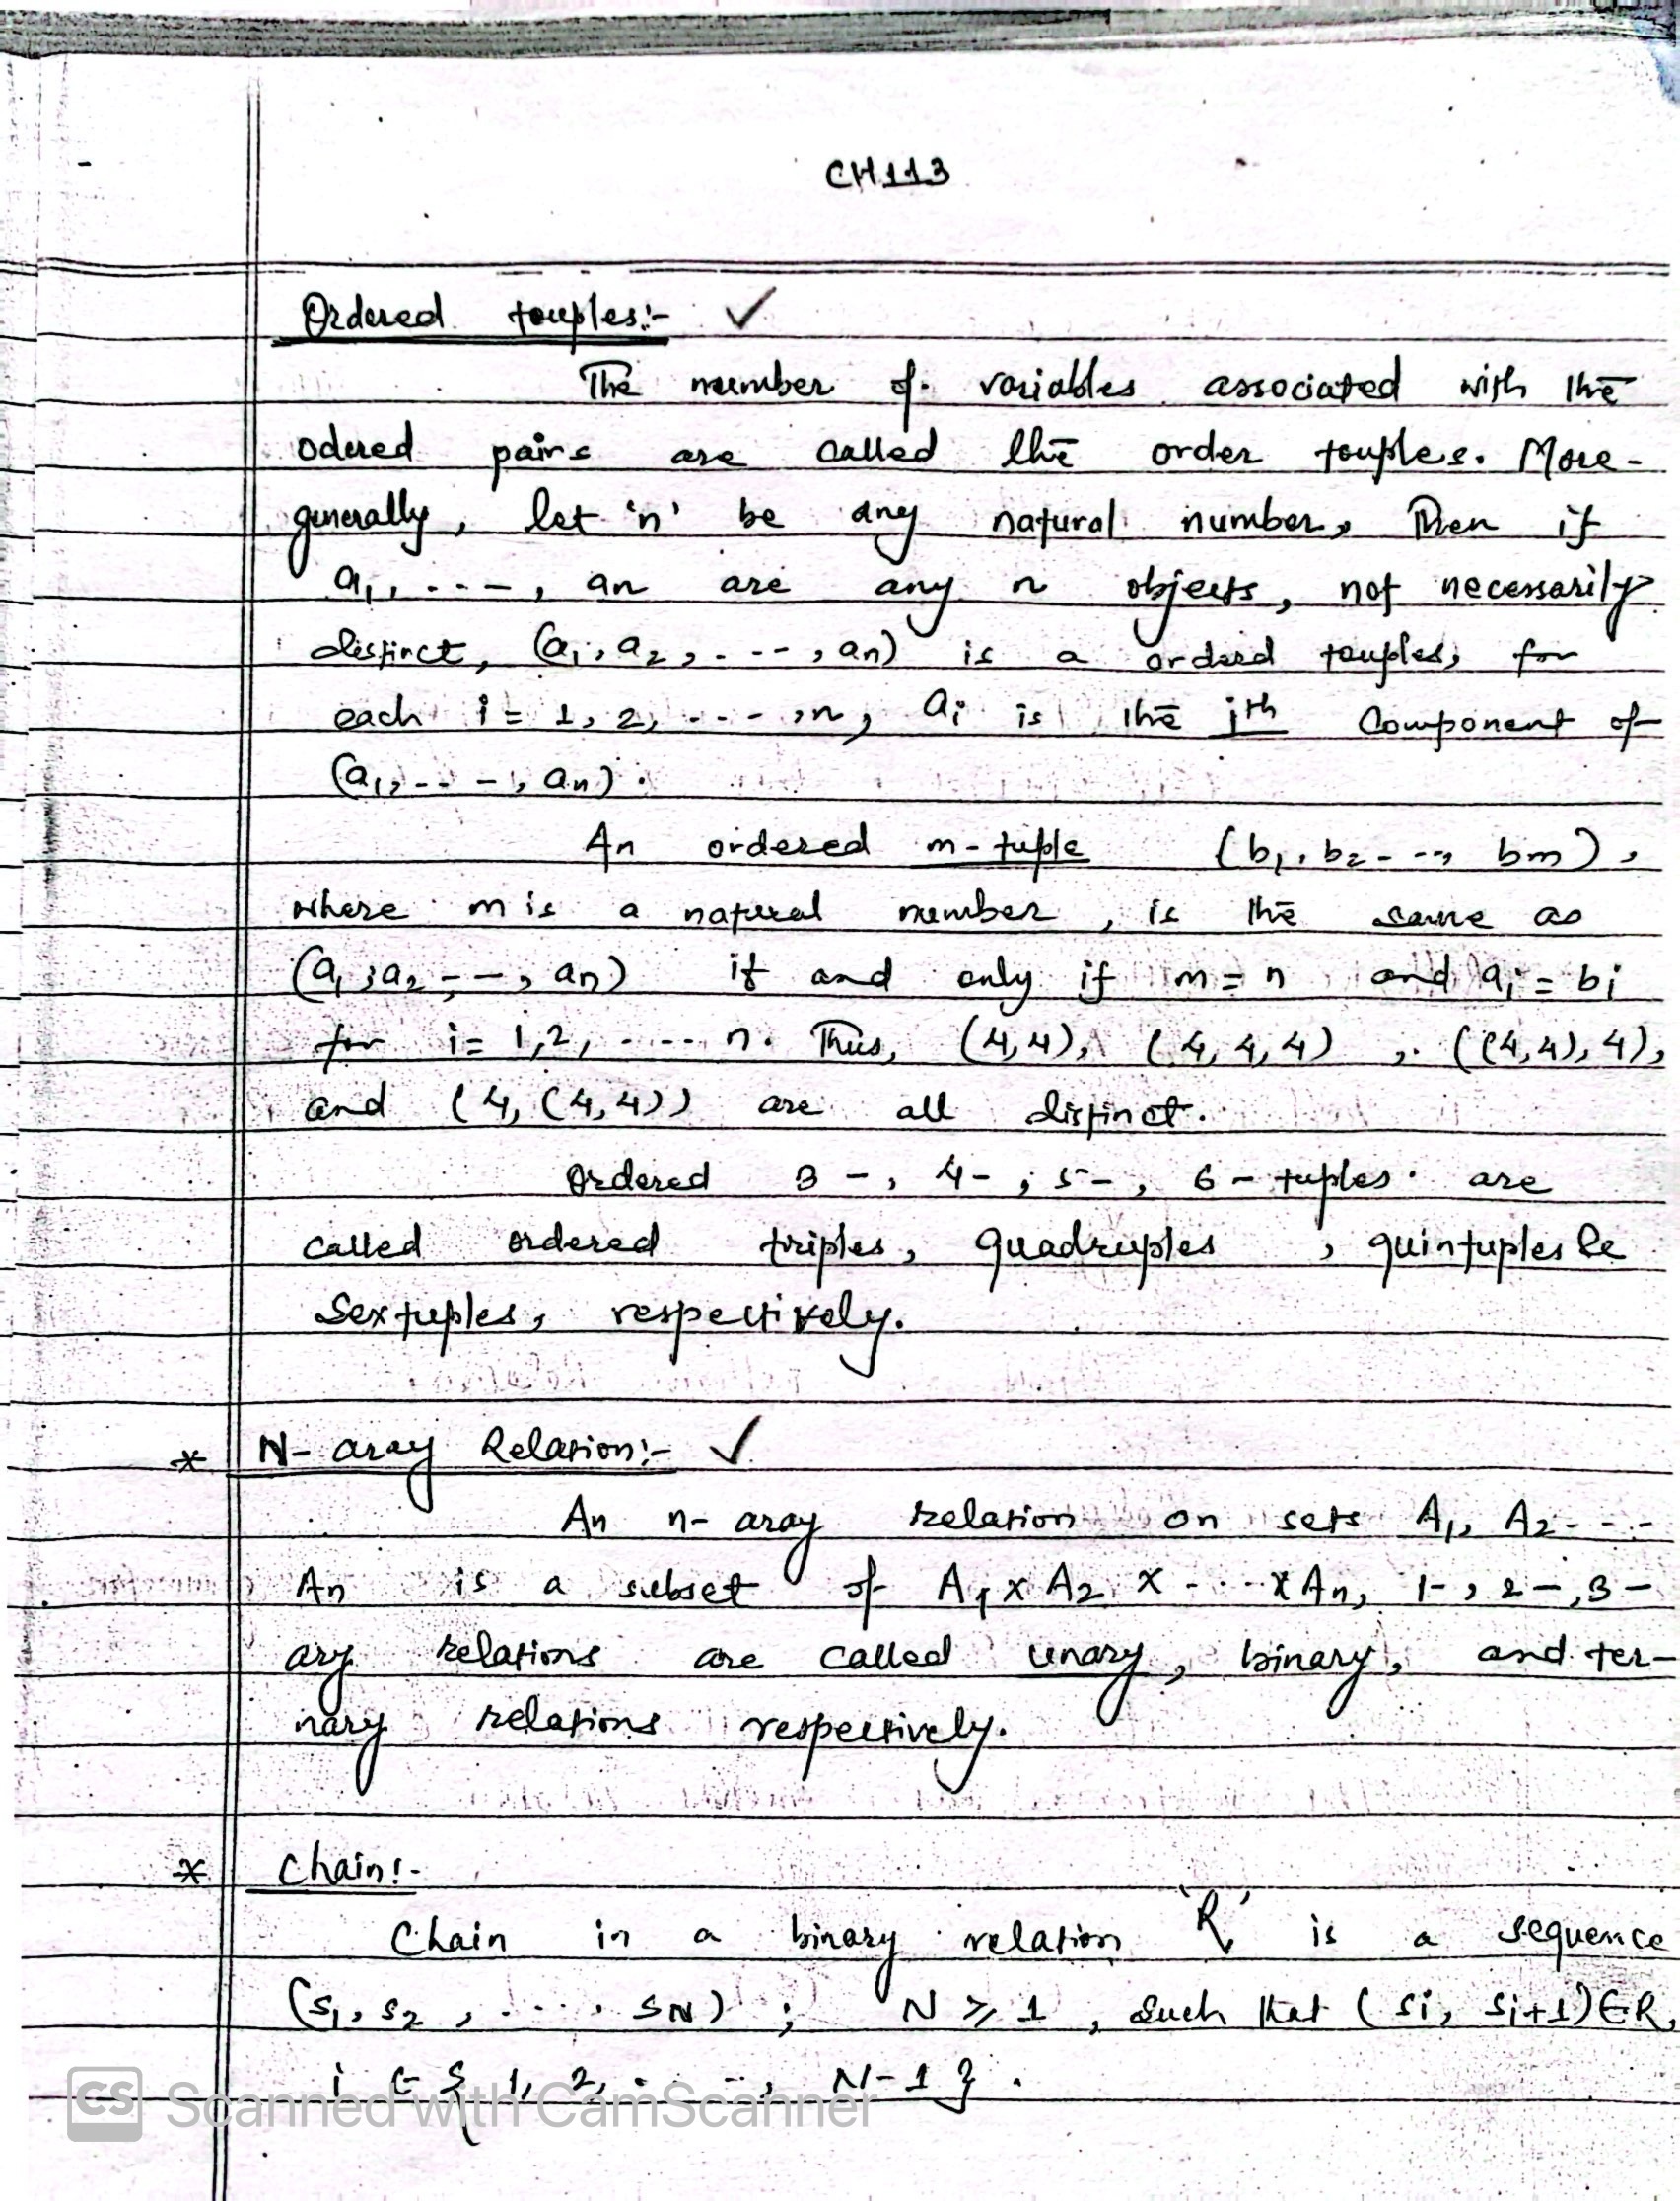 CH113
Ordered touples:- ✓
The number of variables associated with the
odered pairs are called the order touples. More-
generally, let 'n' be any natural number, Then if
a1, . . . -, an are any n objects, not necessarily
distinct, (a1, a2, . - - -, an) is a orderd touples, for
each i = 1, 2, . . . -, n, ai is the ith Component of
(a1, - - - -, an).
An ordered m-tuple (b1, b2 - - -, bm),
where m is a natural number, is the same as
(a1, a2, - -, an) if and only if m = n and ai = bi
for i = 1,2, . . . . n. Thus, (4,4), (4,4,4), ((4,4),4),
and (4,(4,4)) are all distinct.
Ordered 3-, 4-, 5-, 6-tuples are
called ordered triples, quadruples, quintuples &
Sextuples, respectively.
* N-aray Relation:- ✓
An n-aray relation on sets A1, A2 - - -
An is a subset of A1 x A2 x - . . . x An, 1-, 2-, 3-
ary relations are called unary, binary, and ter-
nary relations respectively.
* Chain:-
Chain in a binary relation 'R' is a sequence
(s1, s2, . . . . sN); N ⩾ 1, such that (si, si+1) ∈ R,
i ∈ { 1, 2, . . . -, N-1 }.
CS Scanned with CamScanner